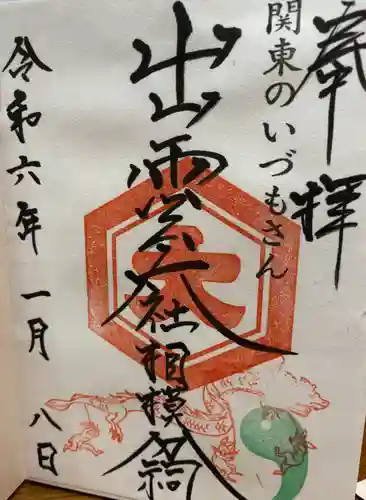 奉拝
関東のいづもさん
出雲大社相模分祠
令和六年一月八日
大